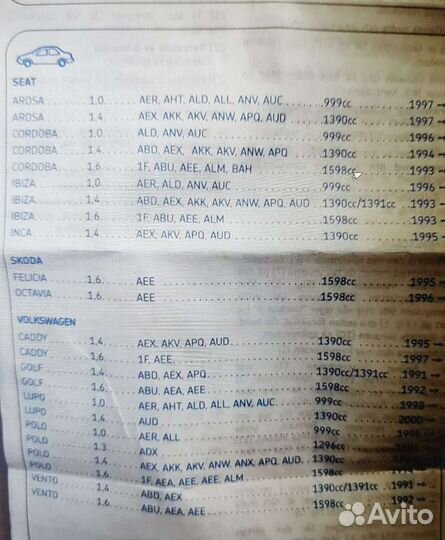 SEAT
AROSA 1.0 AER, AHT, ALD, ALL, ANV, AUC 999cc 1997 →
AROSA 1.4 AEX, AKK, AKV, ANW, APQ, AUD 1390cc 1997 →
CORDOBA 1.0 ALD, ANV, AUC 999cc 1996
CORDOBA 1.4 ABD, AEX, AKK, AKV, ANW, APQ 1390cc 1994
CORDOBA 1.6 1F, ABU, AEE, ALM, BAH 1598cc 1993 →
IBIZA 1.0 AER, ALD, ANV, AUC 999cc 1996
IBIZA 1.4 ABD, AEX, AKK, AKV, ANW, APQ, AUD 1390cc/1391cc 1993
IBIZA 1.6 1F, ABU, AEE, ALM 1598cc 1993
INCA 1.4 AEX, AKV, APQ, AUD 1390cc 1995
SKODA
FELICIA 1.6 AEE 1598cc 1995 →
OCTAVIA 1.6 AEE 1598cc 1996
VOLKSWAGEN
CADDY 1.4 AEX, AKV, APQ, AUD 1390cc 1995 →
CADDY 1.6 1F, AEE 1598cc 1997 →
GOLF 1.4 ABD, AEX, APQ 1390cc/1391cc 1991 →
GOLF 1.6 ABU, AEA, AEE 1598cc 1992 →
LUPO 1.0 AER, AHT, ALD, ALL, ANV, AUC 999cc 1998 →
LUPO 1.4 AUD 1390cc 2000 →
POLO 1.0 AER, ALL 999cc
POLO 1.3 ADX 1296cc
POLO 1.4 AEX, AKK, AKV, ANW, ANX, APQ, AUD 1390cc
POLO 1.6 1F, AEA, AEE, AEE, ALM 1598cc
VENTO 1.4 ABD, AEX 1390cc/1391cc 1991 →
VENTO 1.6 ABU, AEA, AEE 1598cc 1992 →
Avito